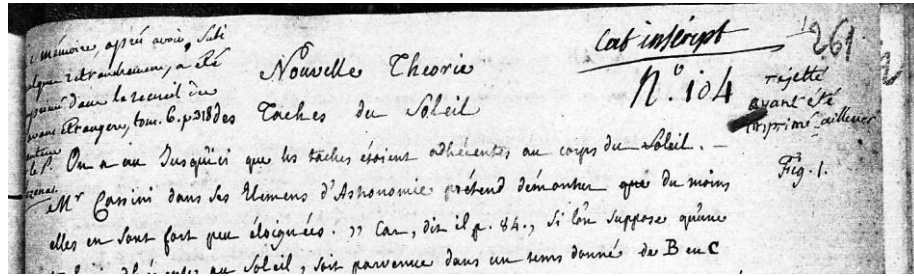 mémoire, après avoir subi
quelques retranchemens, a été
imprimé dans le recueil des
savans Etrangers, tom. 6. p. 318
Nouvelle Theorie
des Taches du Soleil
Cet inscript
261
N.º 104
rejetté
ayant été
imprimé ailleurs
Fig. 1.
On a cru Jusqu'ici que les taches étoient adhérentes au corps du Soleil. –
Mr Cassini dans ses Elemens d'Astronomie prétend démontrer que du moins
elles en sont fort peu éloignées. ,, Car, dit il p. 84., Si l'on suppose qu'une
adhérente au Soleil, soit parvenue dans un tems donné de B en C